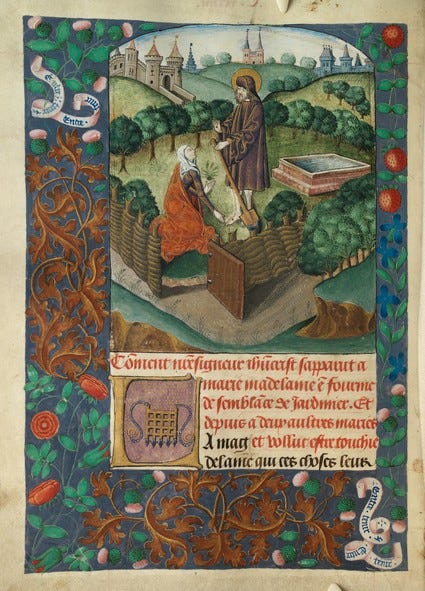 Cõment nr̃esigneur ihũcrst sapparut a
marie madelaine ē fourme
de semblãce de Jardinier. Et
depuis a deux aultres maries
A mag et vollut estre touchie
delaine qui ces choses leur